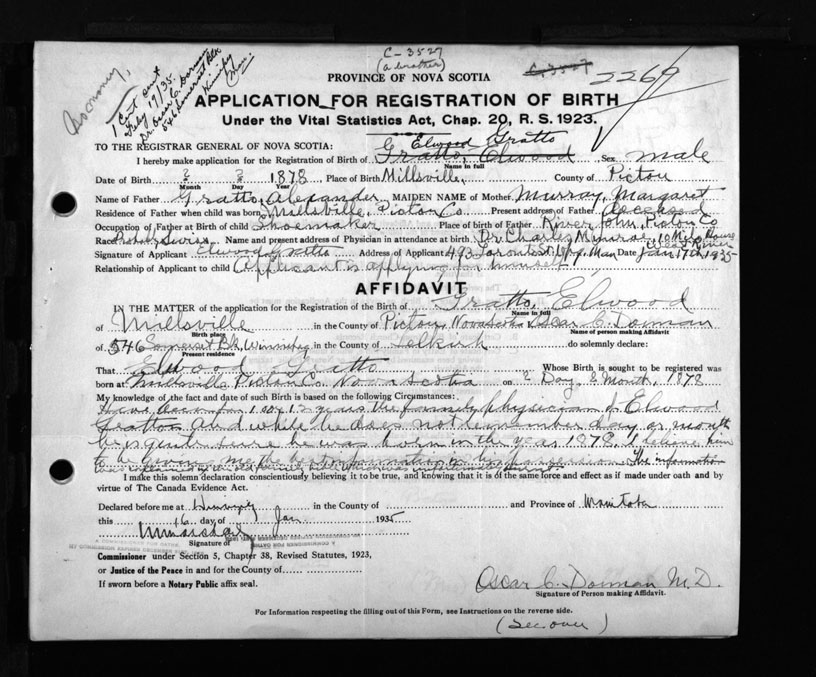 C-3527
(a brother)
C-3507
2269
1 Cert sent
Feby 19/35.
Dr Oscar C. Dorman
546 Somerset Blk
Winnipeg
Man.
PROVINCE OF NOVA SCOTIA
APPLICATION FOR REGISTRATION OF BIRTH
Under the Vital Statistics Act, Chap. 20, R. S. 1923.
TO THE REGISTRAR GENERAL OF NOVA SCOTIA:
Elwood Gratto
I hereby make application for the Registration of Birth of Gratto, Elwood Sex male
Name in full
Date of Birth ? ? 1878 Place of Birth Millsville, County of Pictou
Month Day Year
Name of Father Gratto, Alexander, MAIDEN NAME of Mother, Murray, Margaret
Residence of Father when child was born Millsville, Pictou Co Present address of Father Deceased
Occupation of Father at Birth of Child Shoemaker Place of birth of Father River John, Pictou Co
Race Name and present address of Physician in attendance at birth Dr. Charles Munroe, 10 Mile House West River
Signature of Applicant Elwood Gratto Address of Applicant 493 Toronto St. Wpg. Man Date Jan 17th 1935
Relationship of Applicant to child (Applicant is applying for himself)
AFFIDAVIT
IN THE MATTER of the application for the Registration of the Birth of Gratto, Elwood
Name in full
of Millsville in the County of Pictou, Nova Scotia, Oscar C. Dorman
Birth place Name of person making Affidavit
of 546 Somerset Blk, Winnipeg in the County of Selkirk do solemnly declare:
Present residence
That Elwood Gratto Whose Birth is sought to be registered was
born at Millsville Pictou Co. Nova Scotia on ? Day, ? Month, 1878
My knowledge of the fact and date of such Birth is based on the following Circumstances:
I have been for 10 or 12 years the family physician of Elwood
Gratto and while he does not remember day or month
he is quite sure he was born in the year 1878. I believe him
to be giving me the best information The information
I make this solemn declaration conscientiously believing it to be true, and knowing that it is of the same force and effect as if made under oath and by
virtue of The Canada Evidence Act.
Declared before me at Winnipeg in the County of and Province of Manitoba
this 16 day of Jan 1935
Signature of
Commissioner under Section 5, Chapter 38, Revised Statutes, 1923,
or Justice of the Peace in and for the County of
If sworn before a Notary Public affix seal.
Oscar C. Dorman M.D.
Signature of Person making Affidavit.
For Information respecting the filling out of this Form, see Instructions on the reverse side.
(See over)